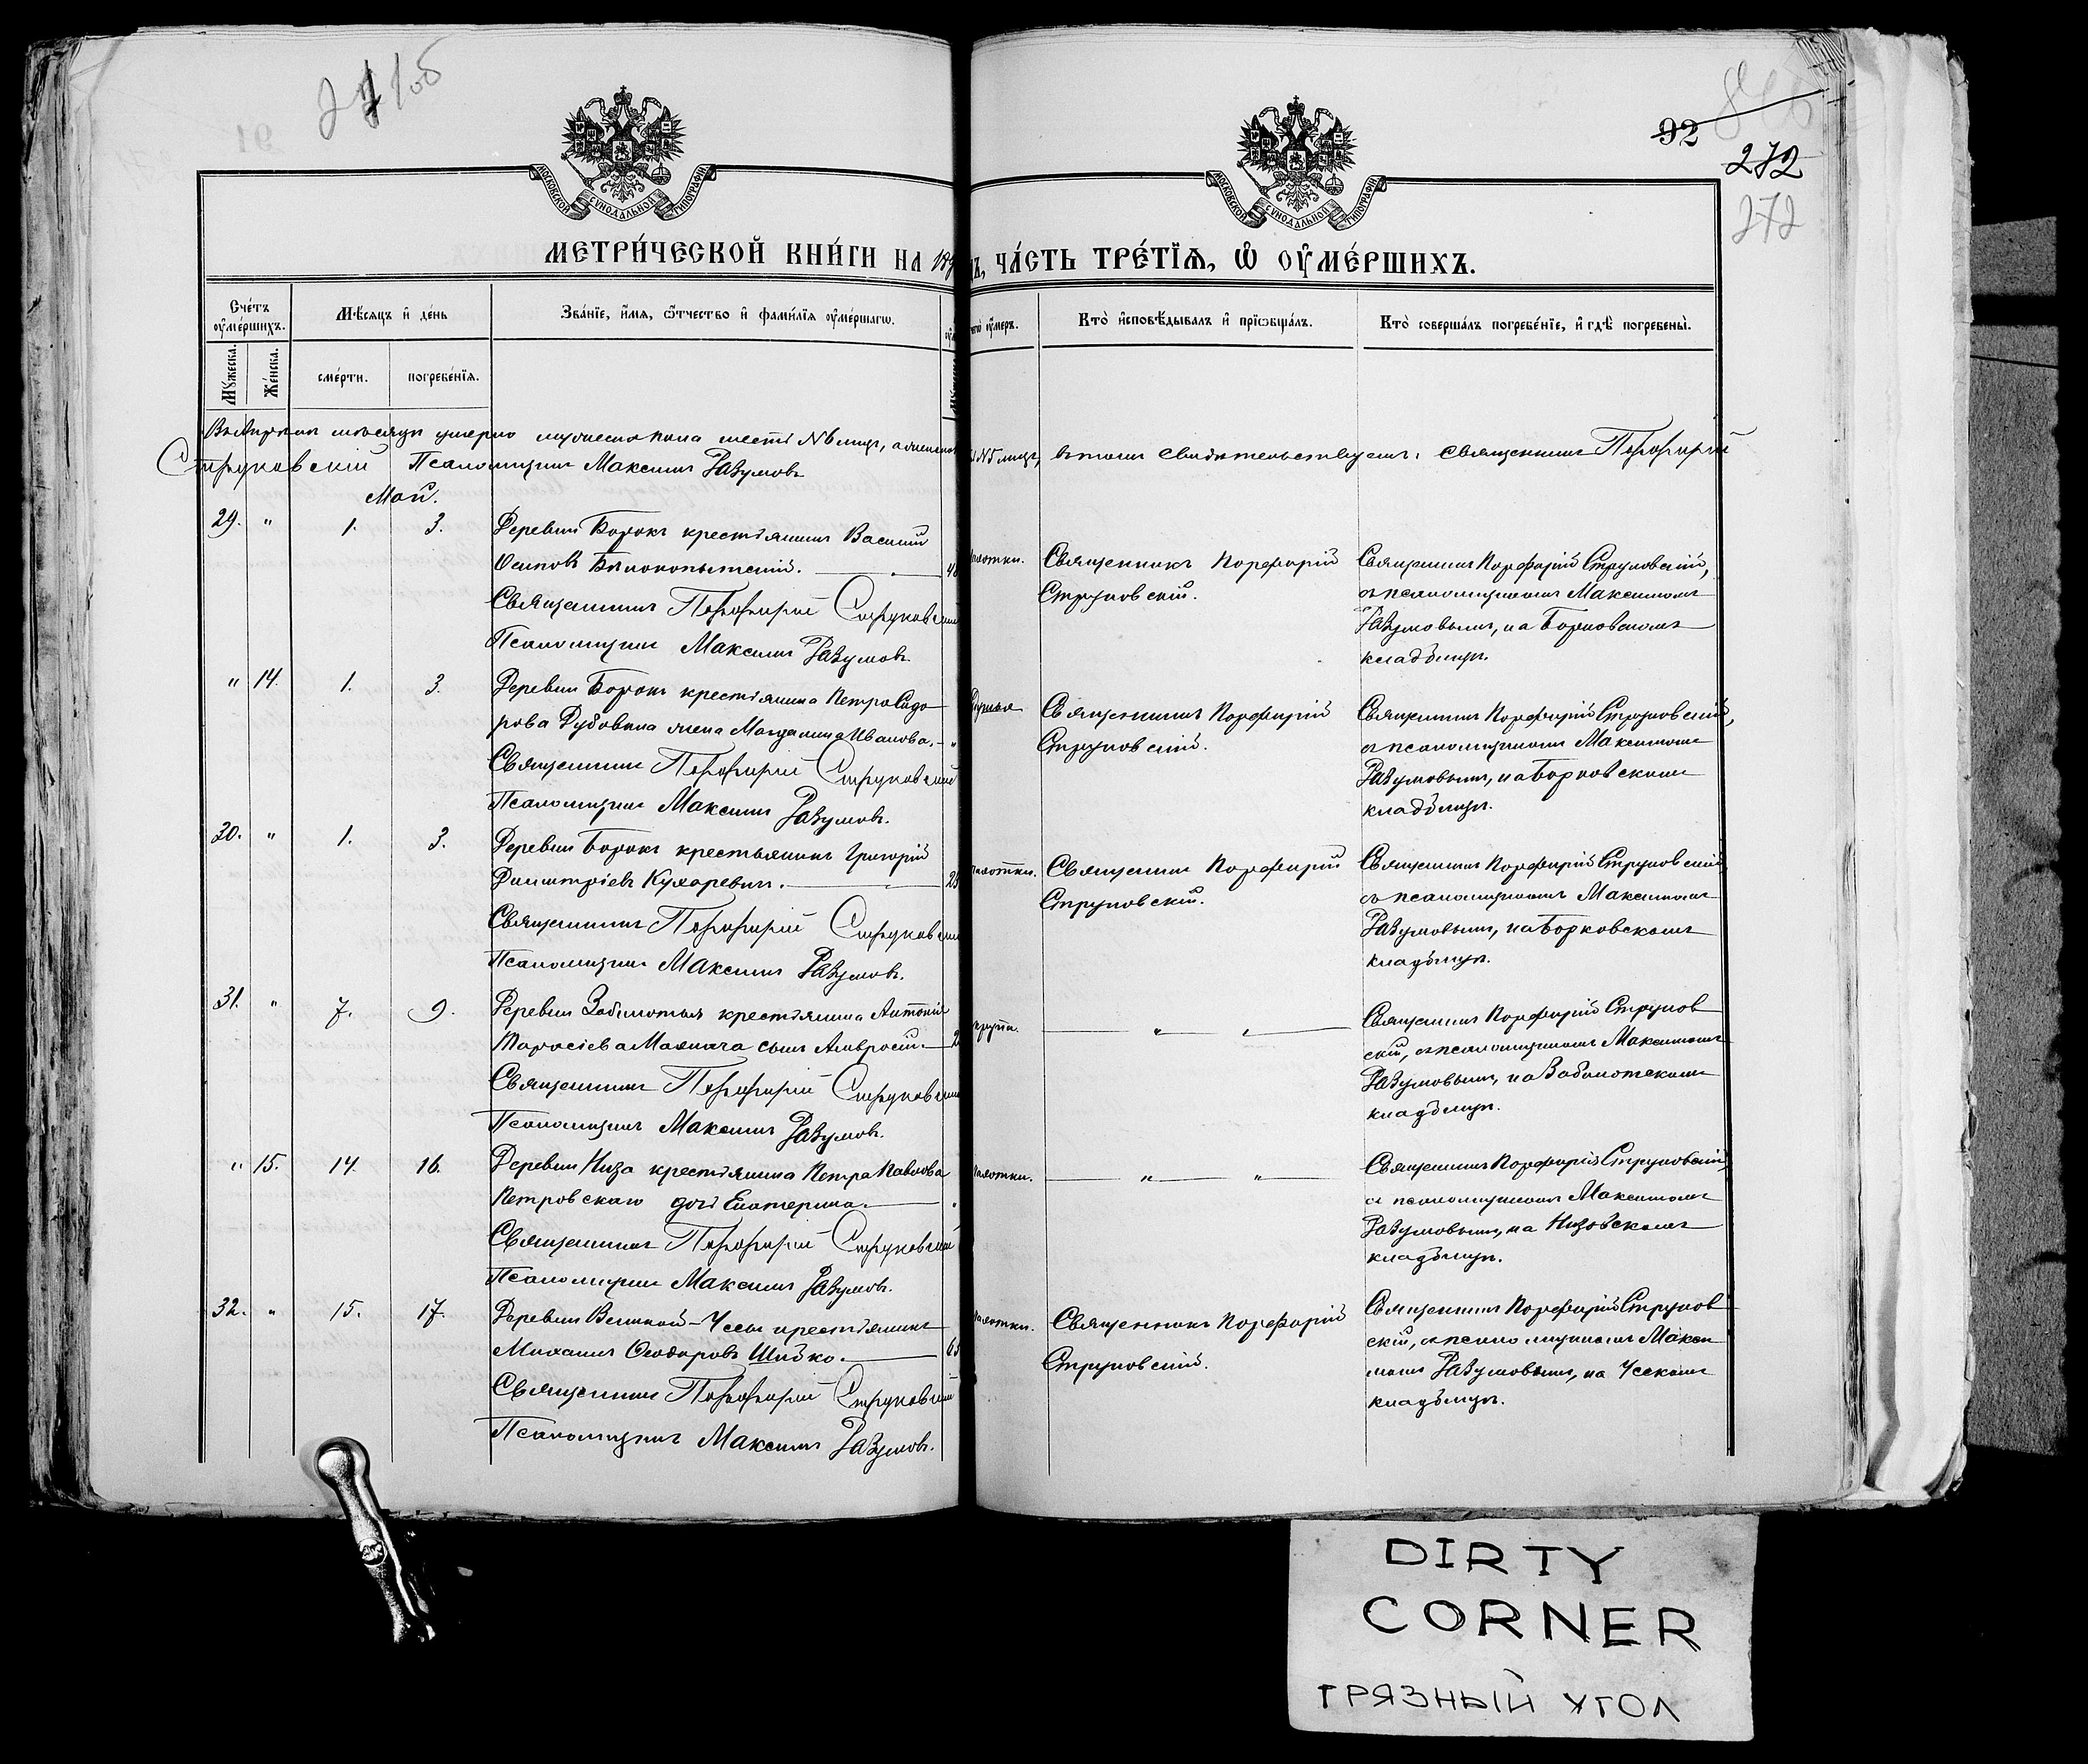 92
272
272
МОСКОВСКОЙ СѴНОДАЛЬНОЙ ТИПОГРАФІИ
МОСКОВСКОЙ СѴНОДАЛЬНОЙ ТИПОГРАФІИ
МЕТРИ́ЧЕСКОЙ КНИ́ГИ НА 189
ЧА́СТЬ ТРЕ́ТЇѦ, Ѡ҆ ОУ҆МЕ́РШИХЪ.
Сче́тъ оу҆ме́ршихъ.
Мꙋ́жеска.
Же́нска.
Мѣ́сѧцъ и҆ де́нь
сме́рти.
погребе́нїѧ.
Зва́нїе, и҆́мѧ, ѻ҆́тчество и҆ фами́лїѧ оу҆ме́ршагѡ.
чегѡ̀ оу҆́меръ.
Кто̀ и҆сповѣ́дывалъ и҆ прїѡбща́лъ.
Кто̀ соверша́лъ погребе́нїе, и҆ гдѣ̀ погребены̀.
Въ Апрѣлѣ мѣсяцѣ умерло мужеска пола шесть №6 лицъ, а женска
№5 лицъ, въ томъ свидѣтельствуемъ: Священникъ Порфирій
Струковскій Псаломщикъ Максимъ Разумовъ
Май.
29. " 1. 3. Деревни Борокъ крестьянинъ Василій
Осиповъ Бѣлокопытскій.
Священникъ Порфирій Струковскій
Псаломщикъ Максимъ Разумовъ.
Священникъ Порфирій
Струковскій.
Священникъ Порфирій Струковскій,
съ псаломщикомъ Максимомъ
Разумовымъ, на Борковскомъ
кладбищѣ.
" 14. 1. 3. Деревни Борокъ крестьянина Петра Сидо
рова Дубовика жена Магдалина Иванова.
Священникъ Порфирій Струковскій
Псаломщикъ Максимъ Разумовъ.
Священникъ Порфирій
Струковскій.
Священникъ Порфирій Струковскій,
съ псаломщикомъ Максимомъ
Разумовымъ, на Борковскомъ
кладбищѣ.
30. " 1. 3. Деревни Борокъ крестьянинъ Григорій
Димитріевъ Кухаревичъ.
Священникъ Порфирій Струковскій
Псаломщикъ Максимъ Разумовъ.
Священникъ Порфирій
Струковскій.
Священникъ Порфирій Струковскій
съ псаломщикомъ Максимомъ
Разумовымъ, на Борковскомъ
кладбищѣ.
31. " 7. 9. Деревни Заболотья крестьянина Антонія
Тарасіева сынъ Амвросій.
Священникъ Порфирій Струковскій
Псаломщикъ Максимъ Разумовъ.
крупа.
" "
Священникъ Порфирій Струков
скій, съ псаломщикомъ Максимомъ
Разумовымъ, на Заболотскомъ
кладбищѣ.
" 15. 14. 16. Деревни Низа крестьянина Петра Павлова
Петровскаго дочь Екатерина.
Священникъ Порфирій Струковскій
Псаломщикъ Максимъ Разумовъ.
" "
Священникъ Порфирій Струковскій
съ псаломщикомъ Максимомъ
Разумовымъ, на Низовскомъ
кладбищѣ.
32. " 15. 17. Деревни Великой-Уссы крестьянинъ
Михаилъ Ѳеодоровъ Шибко.
Священникъ Порфирій Струковскій
Псаломщикъ Максимъ Разумовъ.
Священникъ Порфирій
Струковскій.
Священникъ Порфирій Струков
скій, съ псаломщикомъ Макси
момъ Разумовымъ, на Усскомъ
кладбищѣ.
DIRTY
CORNER
ГРЯЗНЫЙ УГОЛ